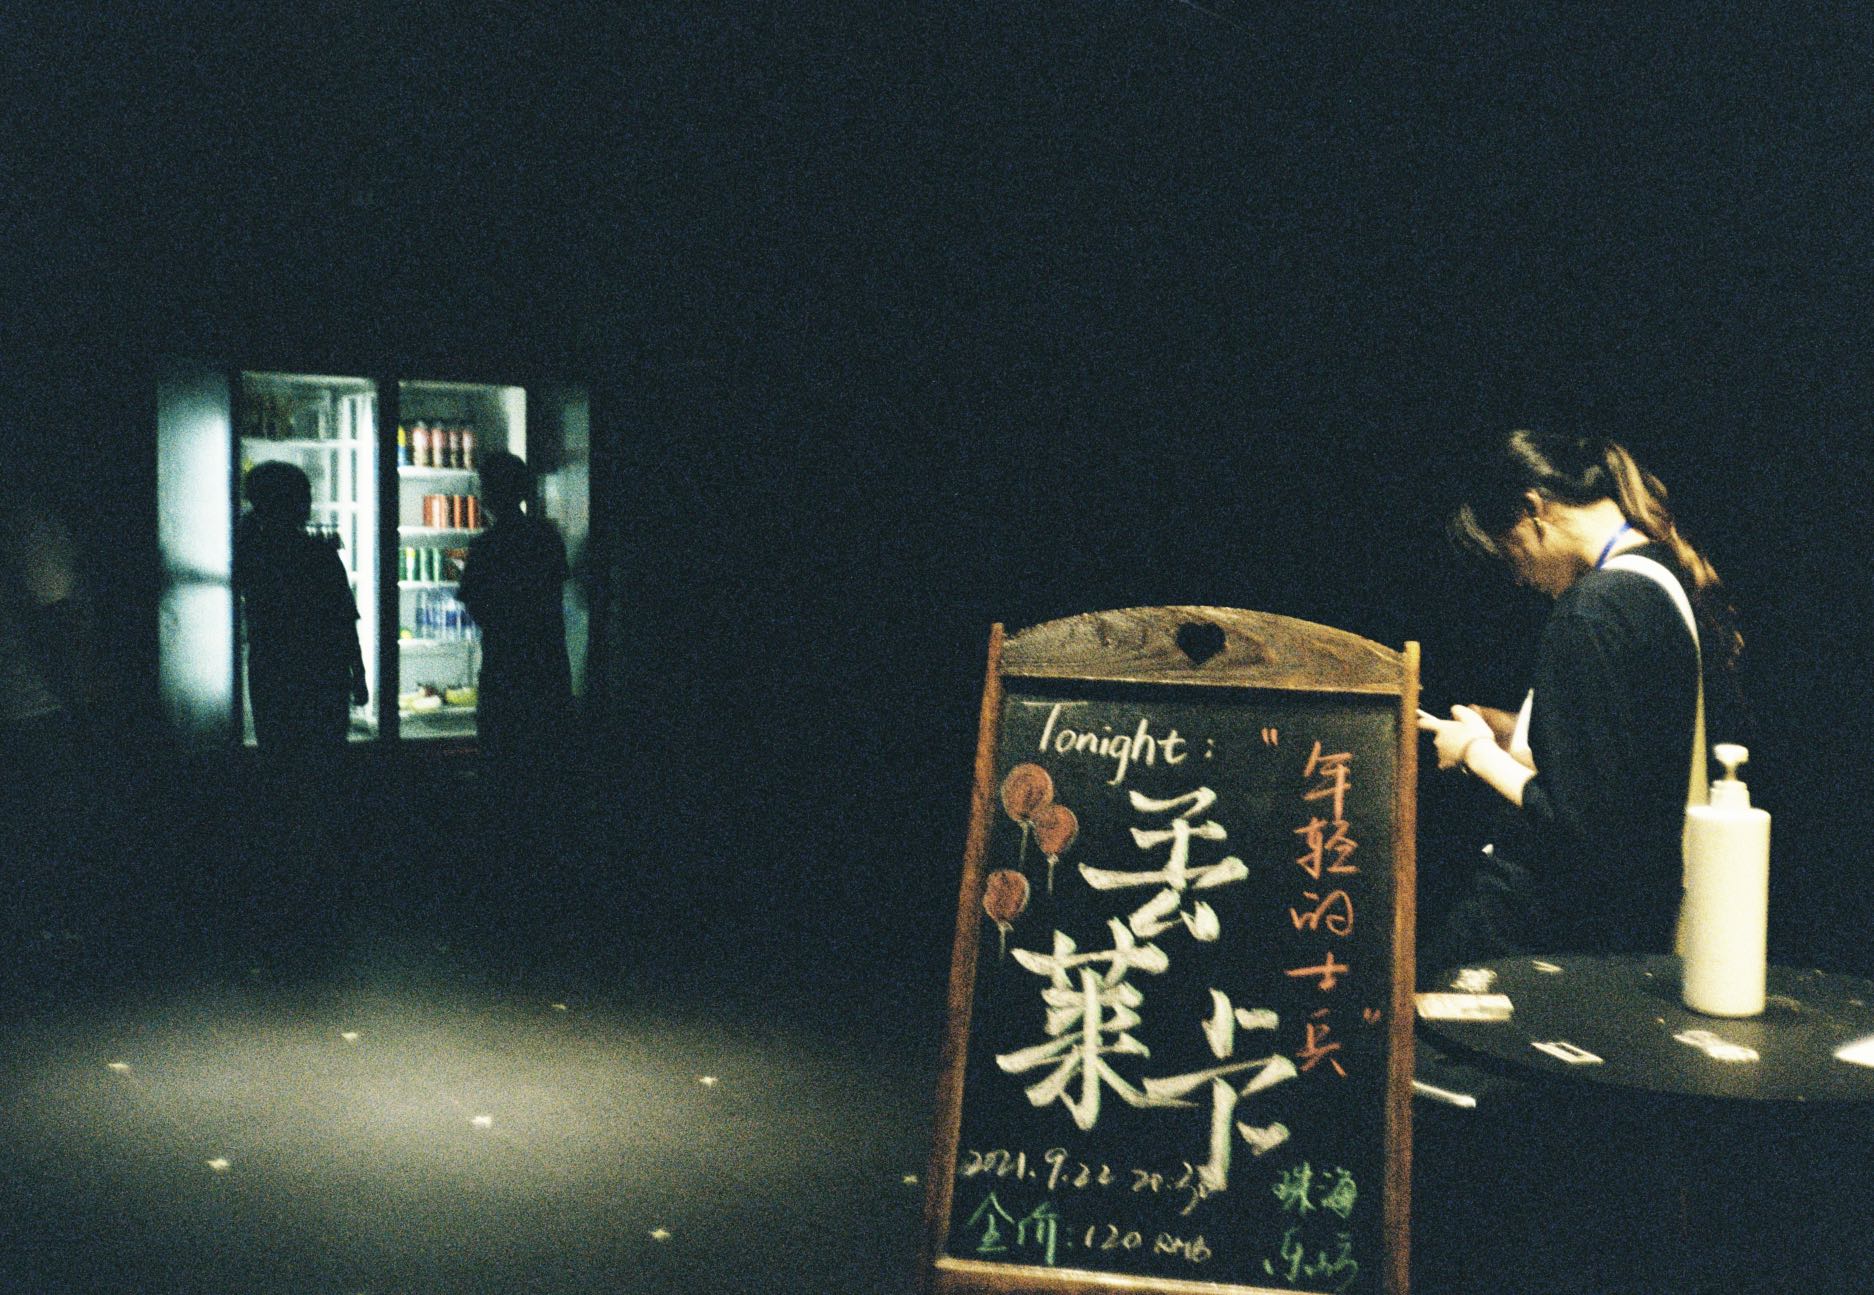 Tonight:
"年轻的士兵"
丢莱卡
2021.9.22 20:30
全价:120 RMB
珠海